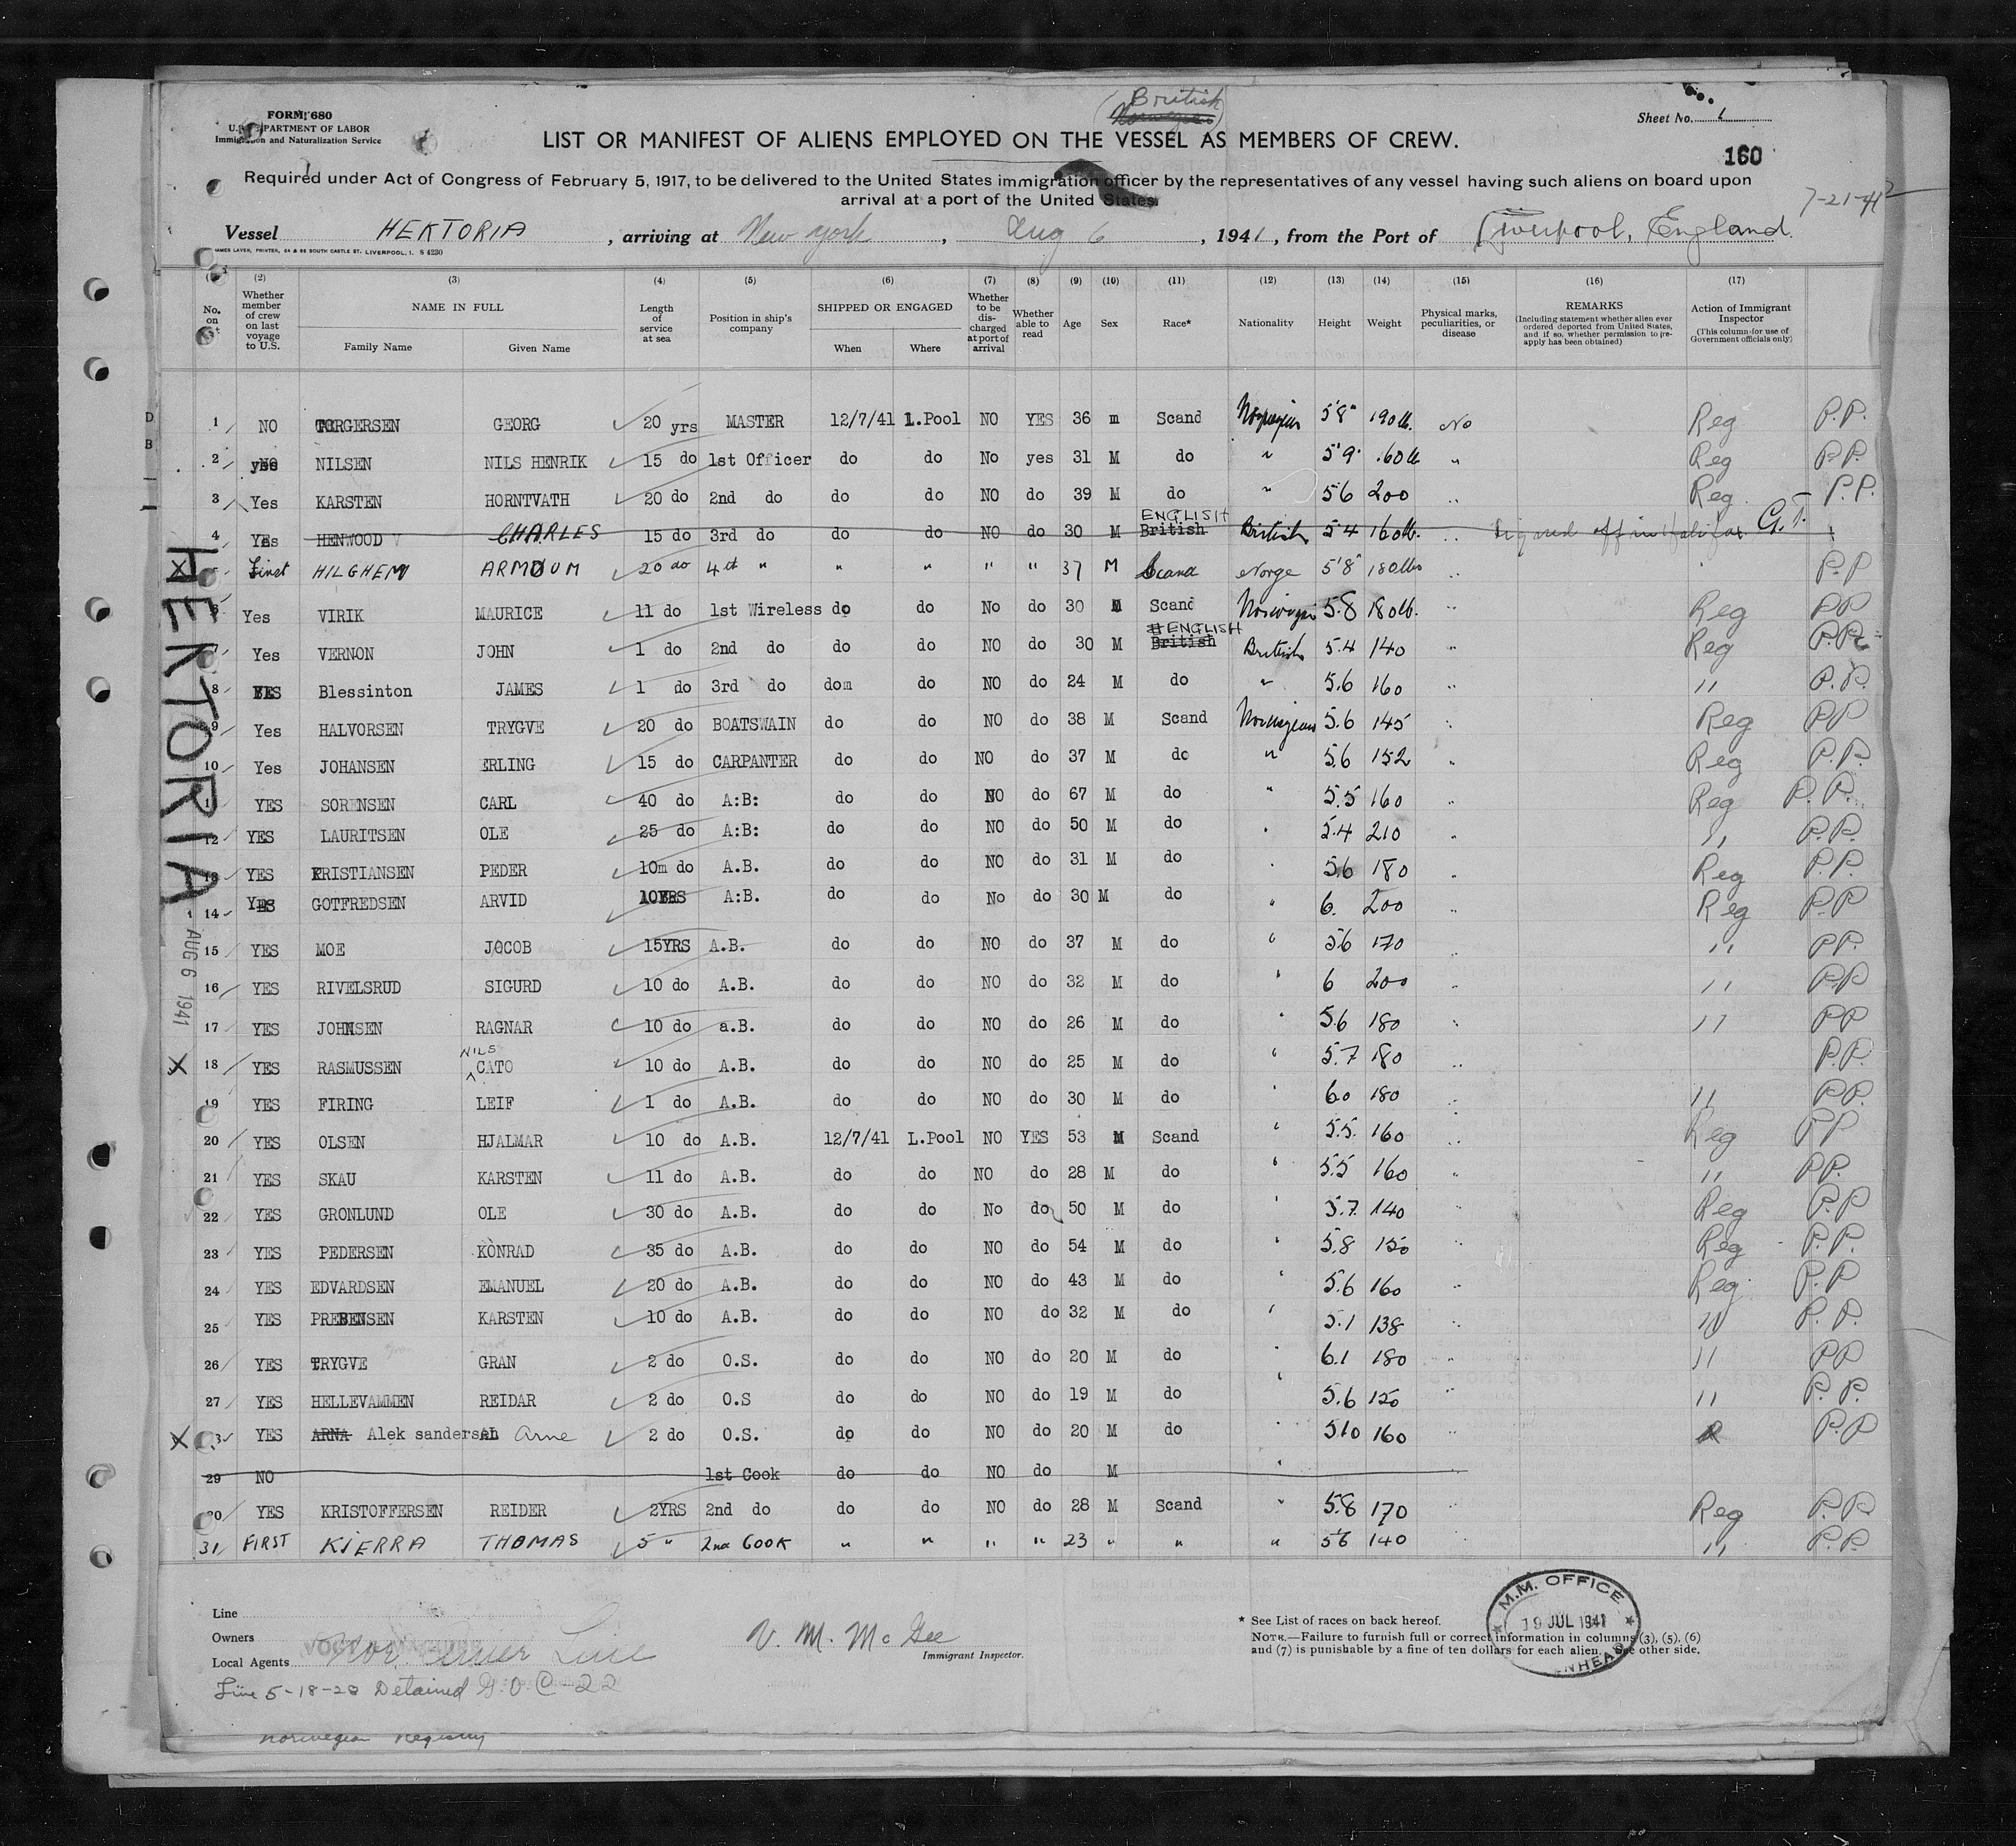 FORM 680
U.S. DEPARTMENT OF LABOR
Immigration and Naturalization Service
(British
Norwegian)
Sheet No. 1
LIST OR MANIFEST OF ALIENS EMPLOYED ON THE VESSEL AS MEMBERS OF CREW.
160
Required under Act of Congress of February 5, 1917, to be delivered to the United States immigration officer by the representatives of any vessel having such aliens on board upon
arrival at a port of the United States.
7-21-41
Vessel HEKTORIA, arriving at New York, Aug 6, 1941, from the Port of Liverpool, England.
JAMES LAVER, PRINTER, 64 & 66 SOUTH CASTLE ST. LIVERPOOL, 1. S 4230
(2) (3) (4) (5) (6) (7) (8) (9) (10) (11) (12) (13) (14) (15) (16) (17)
No. on List
Whether member of crew on last voyage to U.S.
NAME IN FULL
Family Name Given Name
Length of service at sea
Position in ship's company
SHIPPED OR ENGAGED
When Where
Whether to be discharged at port of arrival
Whether able to read
Age
Sex
Race*
Nationality
Height
Weight
Physical marks, peculiarities, or disease
REMARKS
(Including statement whether alien ever ordered deported from United States, and if so, whether permission to re-apply has been obtained)
Action of Immigrant Inspector
(This column for use of Government officials only)
1 NO TORGERSEN GEORG 20 yrs MASTER 12/7/41 L.Pool NO YES 36 m Scand Norwegian 5'8" 190 lb. No Reg P.P.
2 yes NILSEN NILS HENRIK 15 do 1st Officer do do No yes 31 M do " 5'9" 160 lb " Reg P.P.
3 Yes KARSTEN HORNTVATH 20 do 2nd do do do NO do 39 M do " 5'6 200 " Reg. P.P.
4 Yes HENWOOD CHARLES 15 do 3rd do do do NO do 30 M British ENGLISH British 5'4 160 lb. " Signed off in Halifax G.T.
X First HILGHEM ARMOUM 20 do 4th " " " " " 37 M Scand Norge 5'8 180 lbs " P.P
Yes VIRIK MAURICE 11 do 1st Wireless do do No do 30 M Scand Norwegian 5.8 180 lb. " Reg P.P
Yes VERNON JOHN 1 do 2nd do do do NO do 30 M British ENGLISH British 5.4 140 " Reg P.P.
8 YES Blessinton JAMES 1 do 3rd do dom do NO do 24 M do " 5.6 160 " " P.P.
9 Yes HALVORSEN TRYGVE 20 do BOATSWAIN do do NO do 38 M Scand Norwegian 5.6 145 " Reg P.P
10 Yes JOHANSEN ERLING 15 do CARPANTER do do NO do 37 M do " 5.6 152 " Reg P.P.
YES SORENSEN CARL 40 do A:B: do do NO do 67 M do " 5.5 160 " Reg P.P.
12 YES LAURITSEN OLE 25 do A:B: do do NO do 50 M do " 5.4 210 " " P.P.
13 YES KRISTIANSEN PEDER 10m do A.B. do do NO do 31 M do " 5.6 180 " Reg P.P.
14 Yes GOTFREDSEN ARVID 10YRS A:B. do do No do 30 M do " 6. 200 " Reg P.P
15 YES MOE JOCOB 15YRS A.B. do do NO do 37 M do " 5.6 170 " " P.P.
16 YES RIVELSRUD SIGURD 10 do A.B. do do NO do 32 M do " 6 200 " " P.P
17 YES JOHNSEN RAGNAR 10 do a.B. do do NO do 26 M do " 5.6 180 " " P.P
X 18 YES RASMUSSEN NILS CATO 10 do A.B. do do NO do 25 M do " 5.7 180 " P.P.
19 YES FIRING LEIF 1 do A.B. do do NO do 30 M do " 6.0 180 " " P.P.
20 YES OLSEN HJALMAR 10 do A.B. 12/7/41 L.Pool NO YES 53 M Scand " 5.5. 160 " Reg P.P
21 YES SKAU KARSTEN 11 do A.B. do do NO do 28 M do " 5.5 160 " " P.P.
22 YES GRONLUND OLE 30 do A.B. do do No do 50 M do " 5.7. 140 " Reg P.P
23 YES PEDERSEN KONRAD 35 do A.B. do do NO do 54 M do " 5.8 150 " Reg P.P.
24 YES EDVARDSEN EMANUEL 20 do A.B. do do NO do 43 M do " 5.6 160 " Reg P.P
25 YES PREBENSEN KARSTEN 10 do A.B. do do NO do 32 M do " 5.1 138 " " P.P.
26 YES TRYGVE GRAN 2 do O.S. do do NO do 20 M do " 6.1 180 " " P.P
27 YES HELLEVAMMEN REIDAR 2 do O.S do do NO do 19 M do " 5.6 150 " " P.P.
X YES ARNA Alek sandersen Arne 2 do O.S. do do NO do 20 M do " 5.10 160 " P.P
29 NO 1st Cook do do NO do M "
30 YES KRISTOFFERSEN REIDER 2YRS 2nd do do do NO do 28 M Scand " 5.8 170 " Reg P.P.
31 FIRST KIERRA THOMAS 5 " 2nd COOK " " " " 23 " " " 5'6 140 " " P.P.
HEKTORIA
AUG 6 1941
Line
Owners
Local Agents
V. M. McGee
Immigrant Inspector.
Line 5-18-28 Detained G.O. C-22
Norwegian Registry
* See List of races on back hereof.
NOTE.—Failure to furnish full or correct information in columns (3), (5), (6)
and (7) is punishable by a fine of ten dollars for each alien. See other side.
M.M. OFFICE
19 JUL 1941